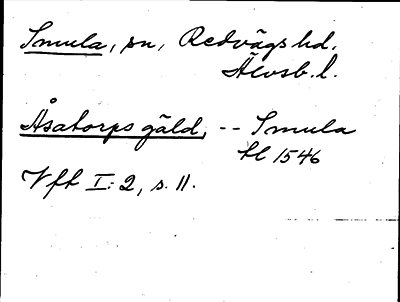 Smula, sn, Redvägs hd.
Älvsb. l.
Åsatorps gäld, -- Smula
hl 1546
Vft I:2, s. 11.